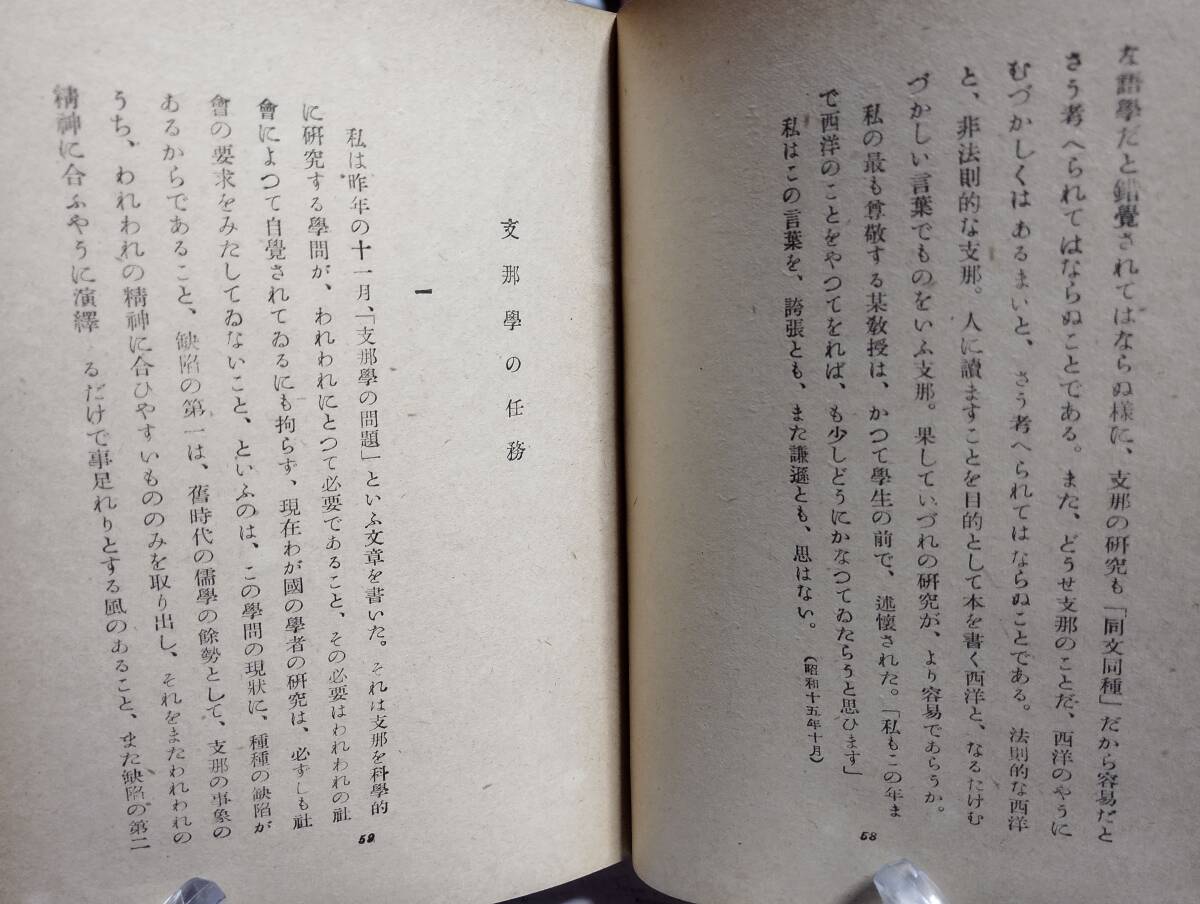 な語學だと錯覺されてはならぬ樣に、支那の硏究も「同文同種」だから容易だと
さう考へられてはならぬことである。また、どうせ支那のことだ、西洋のやうに
むづかしくはあるまいと、さう考へられてはならぬことである。法則的な西洋
と、非法則的な支那。人に讀ますことを目的として本を書く西洋と、なるたけむ
づかしい言葉でものをいふ支那。果していづれの硏究が、より容易であらうか。
私の最も尊敬する某敎授は、かつて學生の前で、述懷された。「私もこの年ま
で西洋のことをやつてをれば、も少しどうにかなつてゐたらうと思ひます」
私はこの言葉を、誇張とも、また謙遜とも、思はない。（昭和十五年十月）
58
支那學の任務
一
私は昨年の十一月、「支那學の問題」といふ文章を書いた。それは支那を科學的
に硏究する學問が、われわれにとつて必要であること、その必要はわれわれの社
會によつて自覺されてゐるにも拘らず、現在わが國の學者の硏究は、必ずしも社
會の要求をみたしてゐないこと、といふのは、この學問の現狀に、種種の缺陷が
あるからであること、缺陷の第一は、舊時代の儒學の餘勢として、支那の事象の
うち、われわれの精神に合ひやすいもののみを取り出し、それをまたわれわれの
精神に合ふやうに演繹 るだけで事足れりとする風のあること、また缺陷の第二
59